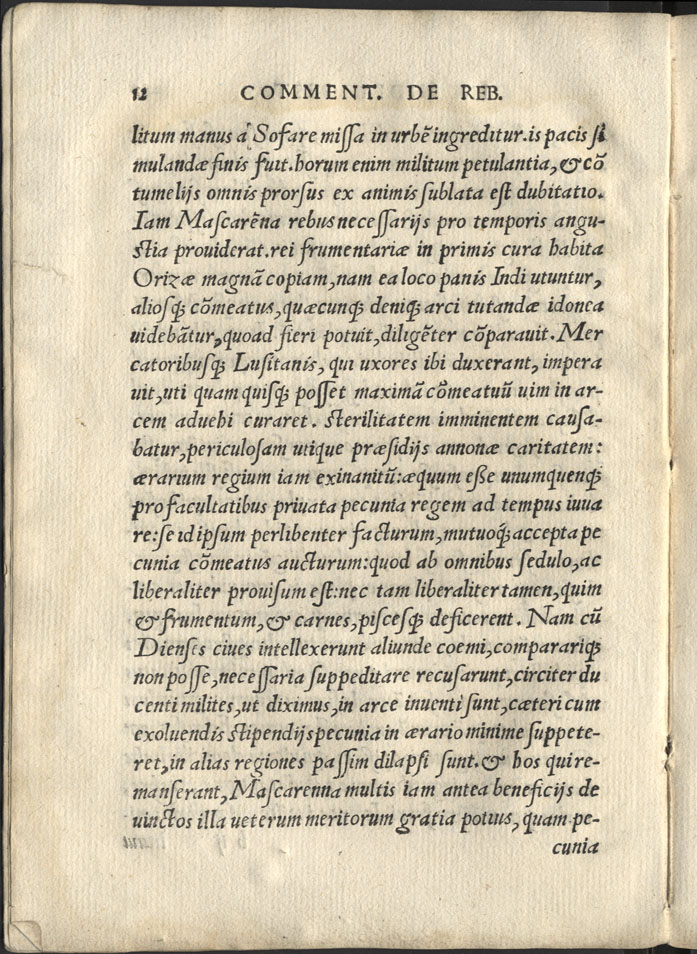 12 COMMENT. DE REB.
litum manus a Sofare missa in urbẽ ingreditur. is pacis si
mulandæ finis fuit. horum enim militum petulantia, & cõ
tumelijs omnis prorsus ex animis sublata est dubitatio.
Iam Mascarẽna rebus necessarijs pro temporis angu-
stia prouiderat. rei frumentariæ in primis cura habita
Orizæ magnã copiam, nam ea loco panis Indi utuntur,
aliosq; cõmeatus, quæcunq; deniq; arci tutandæ idonea
uidebãtur, quoad fieri potuit, diligẽter cõparauit. Mer
catoribusq; Lusitanis, qui uxores ibi duxerant, impera
uit, uti quam quisq; posset maximã cõmeatuũ uim in ar-
cem aduehi curaret. sterilitatem imminentem causa-
batur, periculosam utique præsidijs annonæ caritatem:
ærarium regium iam exinanitũ: æquum esse unumquenq;
pro facultatibus priuata pecunia regem ad tempus iuua
re: se id ipsum perlibenter facturum, mutuoq́; accepta pe
cunia cõmeatus aucturum: quod ab omnibus sedulo, ac
liberaliter prouisum est: nec tam liberaliter tamen, quim
& frumentum, & carnes, piscesq; deficerent. Nam cũ
Dienses ciues intellexerunt aliunde coemi, compararíq;
non posse, necessaria suppeditare recusarunt, circiter du
centi milites, ut diximus, in arce inuenti sunt, cæteri cum
exoluendis stipendijs pecunia in ærario minime suppete-
ret, in alias regiones passim dilapsi sunt. & hos qui re-
manserant, Mascarenna multis iam antea beneficijs de
uinctos illa ueterum meritorum gratia potius, quam pe-
cunia